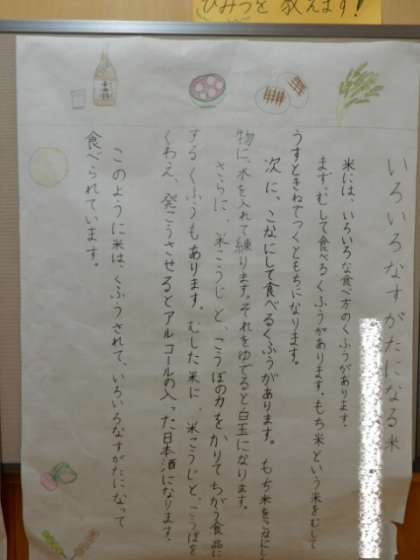 ひみつを教えます!
いろいろなすがたになる米
米には、いろいろな食べ方のくふうがあります。
まず、むして食べるくふうがあります。もち米という米をむして
うすときねでつくともちになります。
次に、こなにして食べるくふうがあります。もち米をこなにし
物に、水を入れて練ります。それをゆでると白玉になります。
さらに、米こうじと、こうぼの力をかりてちがう食品に
するくふうもあります。むした米に、米こうじと、こうぼを
くわえ、発こうさせるとアルコールの入った日本酒になります。
このように米は、くふうされて、いろいろなすがたになって
食べられています。